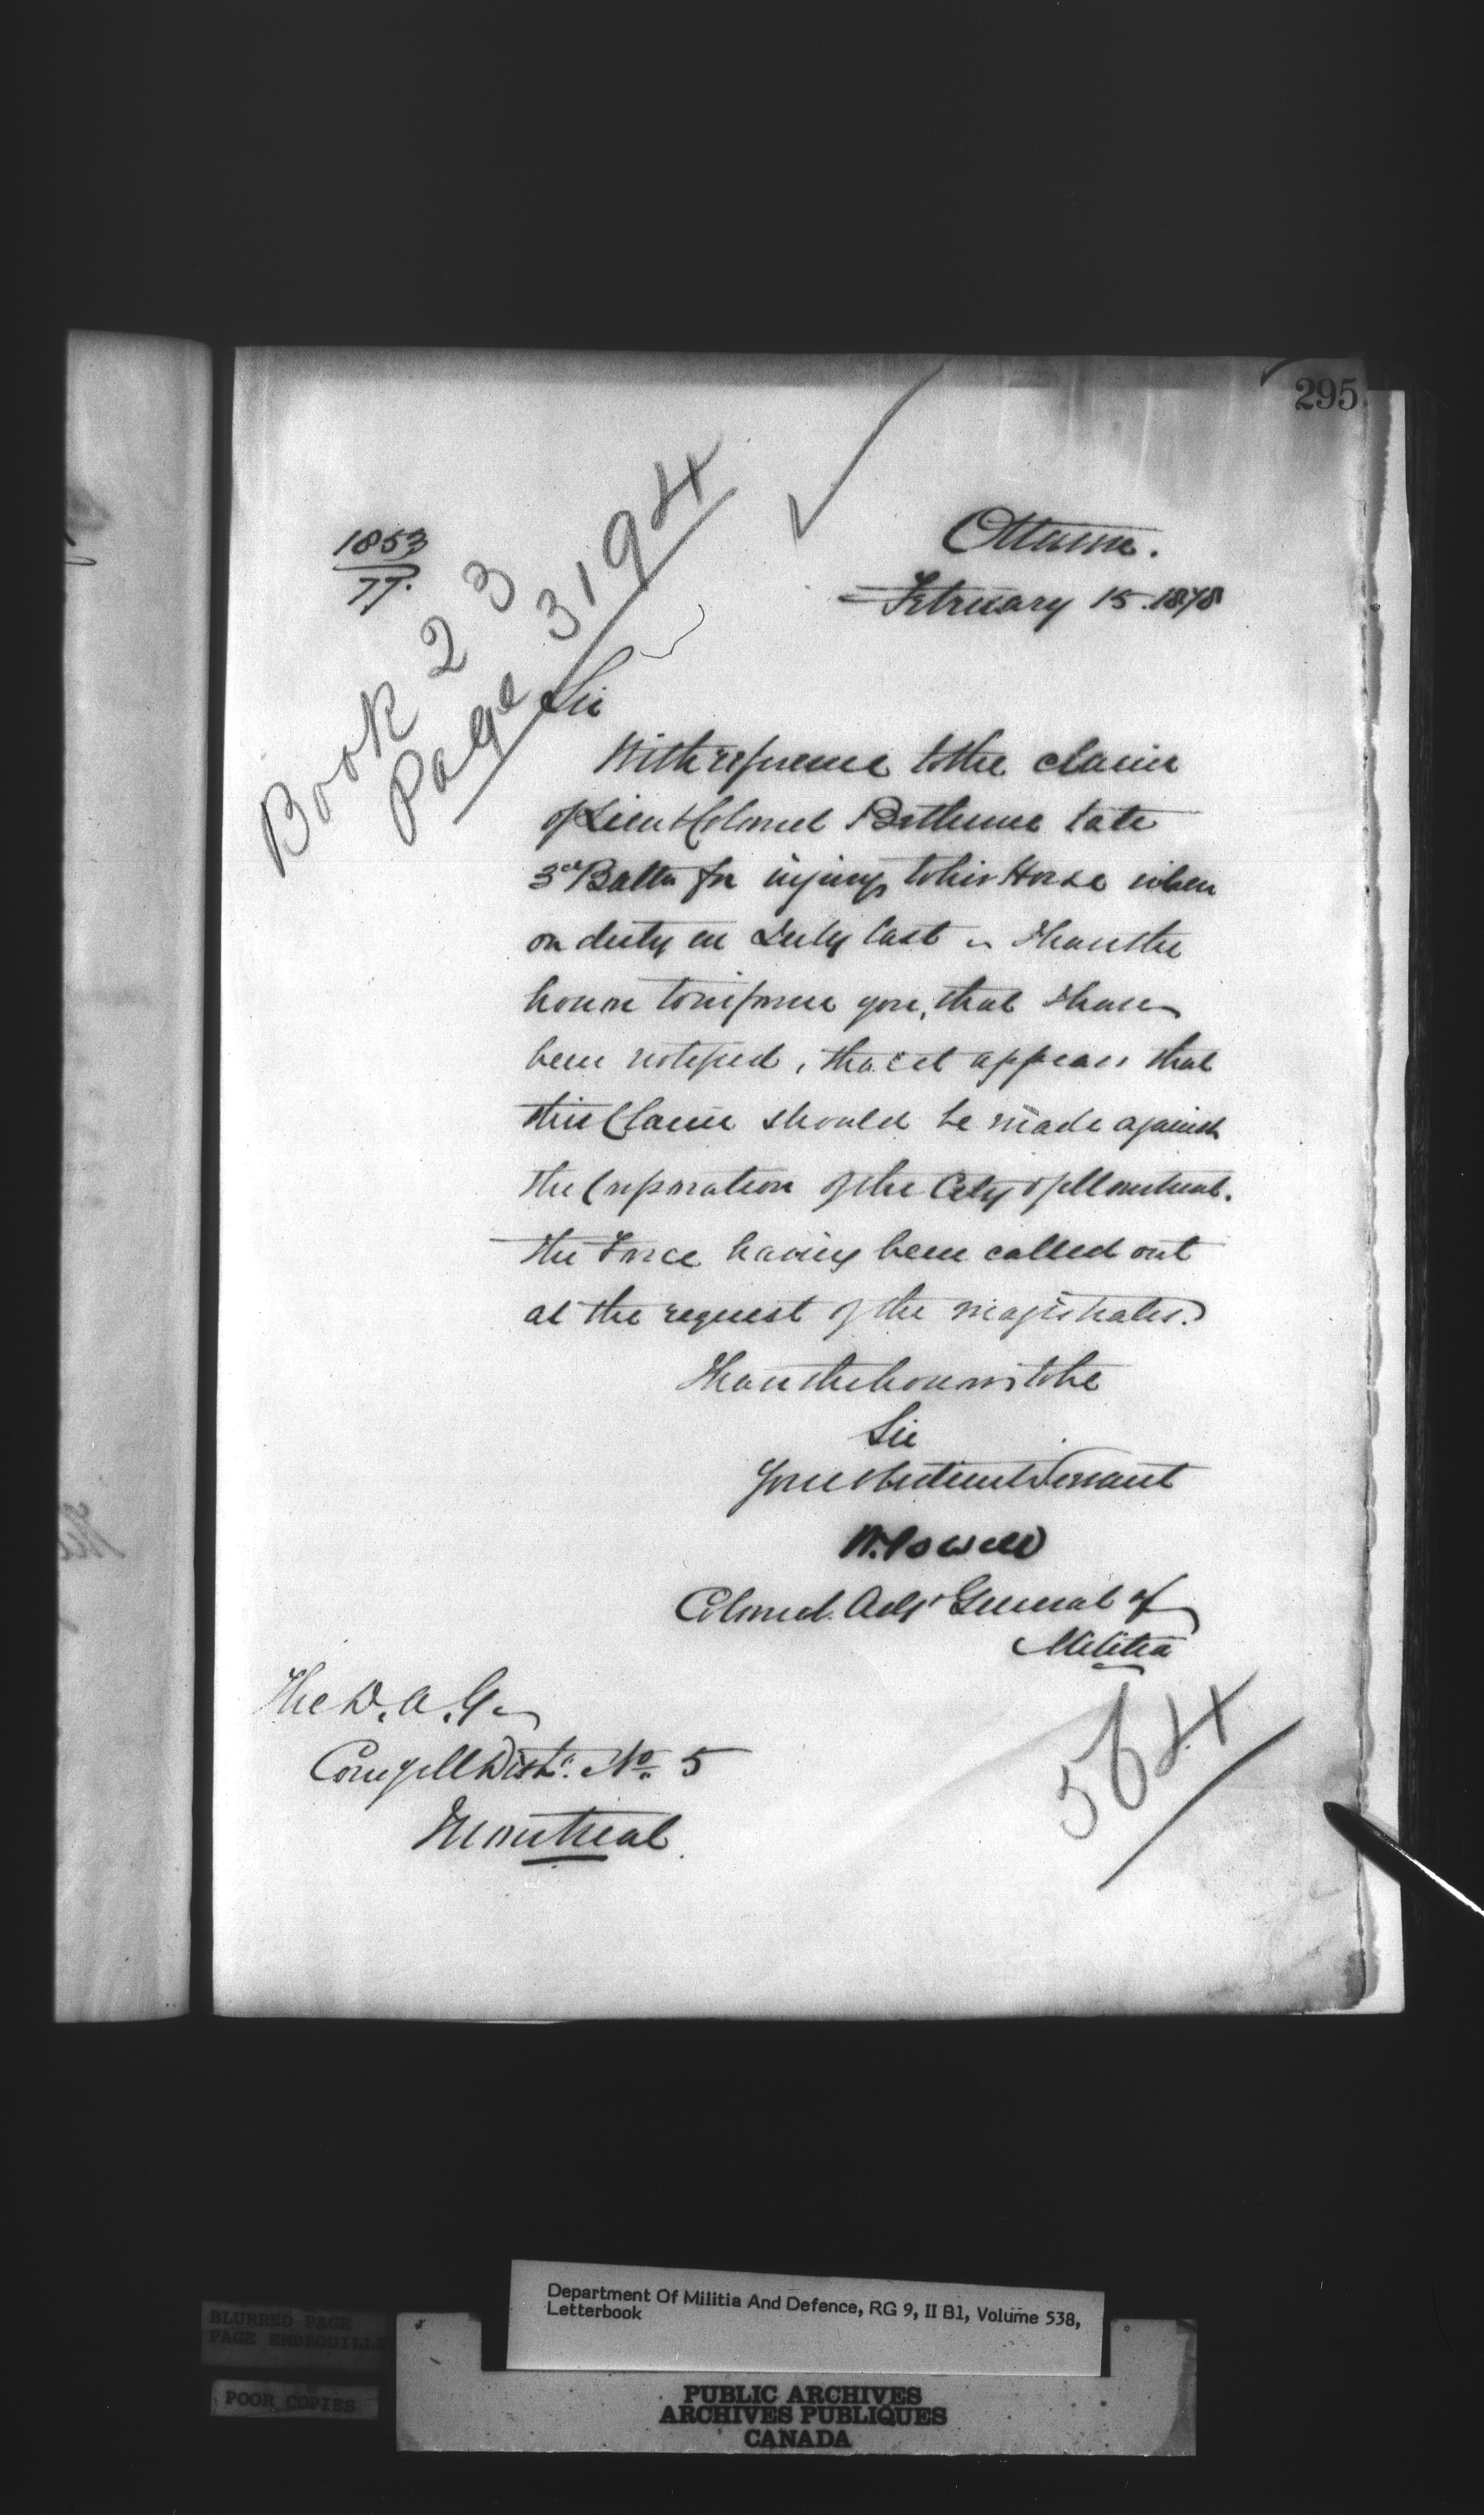 295
1853
77.
Book 23
Page 3194
Ottawa.
February 15. 1878
Sir
With reference to the claim
of Lieut Colonel Bethune late
3rd Battn for injury to his Horse when
on duty in July last I have the
honor to inform you, that I have
been notified, that it appears that
this Claim should be made against
the Corporation of the City of Montreal.
the Force having been called out
at the request of the magistrates.
I have the honor to be
Sir
Your obedient Servant
W. Powell
Colonel. Adjt General of
Militia
The D. A. G.
Comg Mil Dist. No. 5
Montreal.
564
Department Of Militia And Defence, RG 9, II B1, Volume 538,
Letterbook
BLURRED PAGE
PAGE EMBROUILLE
POOR COPIES
PUBLIC ARCHIVES
ARCHIVES PUBLIQUES
CANADA